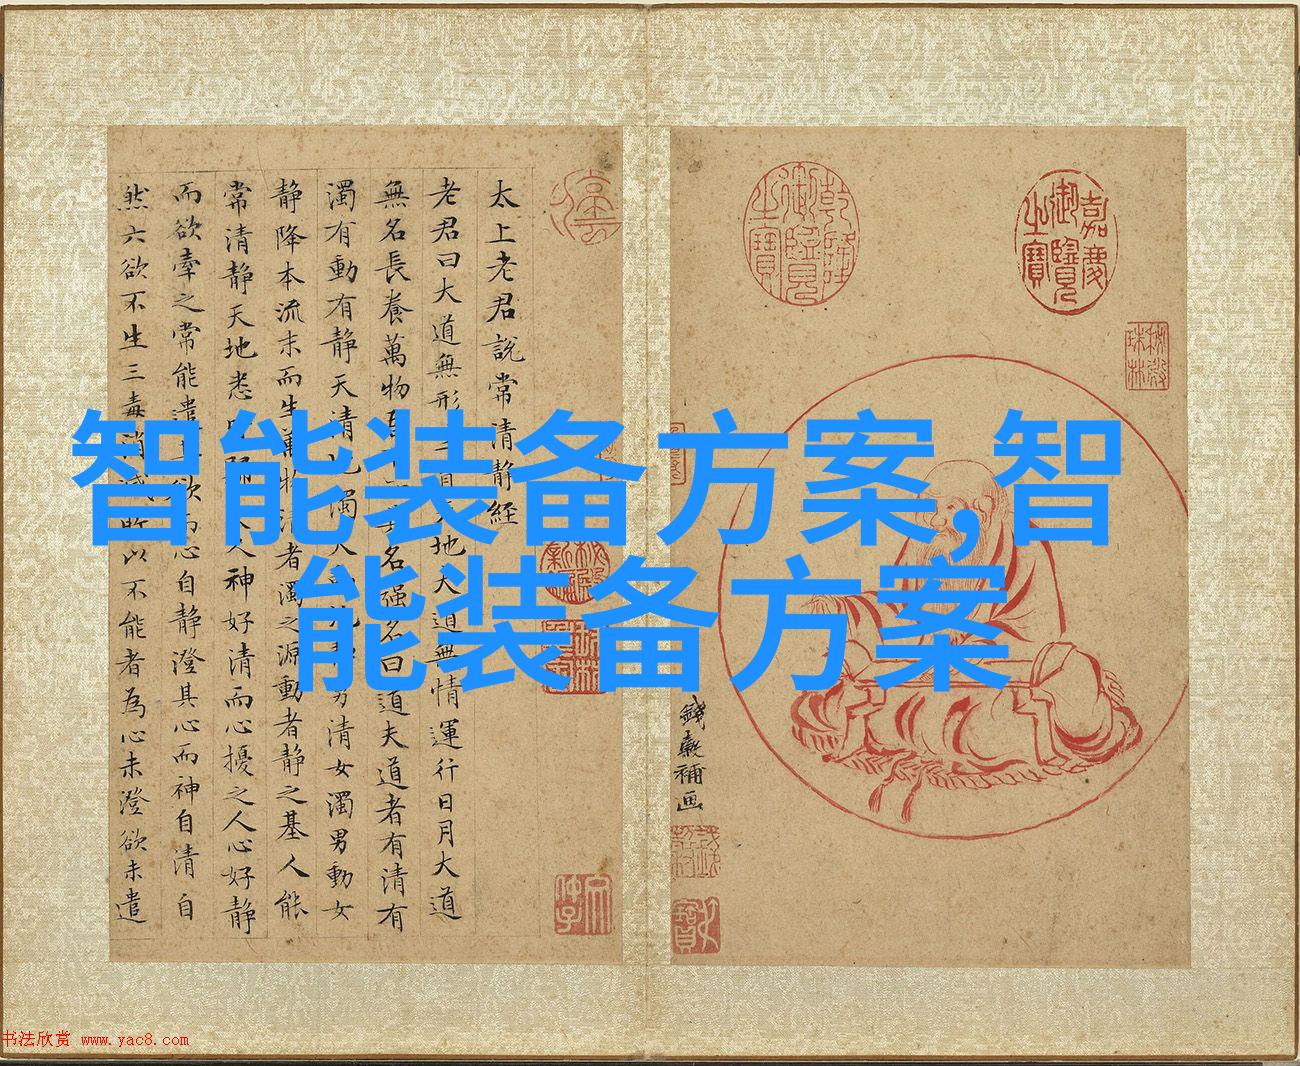 智能装备方案,智
能装备方案
嘉慶御覽之寶
乾隆御覽之寶
秘殿珠林
錢穀補画
太上老君說常清静經
老君曰大道無形地大道無情運行日月大道
無名長養萬物名强名曰道夫道者有清有
濁有動有静天清濁男清女濁男動女
静降本流末而生萬物清者濁之源動者静之基人能
常清静天地悉人神好清而心擾之人心好静
而欲牽之常能遣欲而心自静澄其心而神自清自
然六欲不生三毒消滅以不能者為心未澄欲未遣
书法欣赏 www.yac8.com